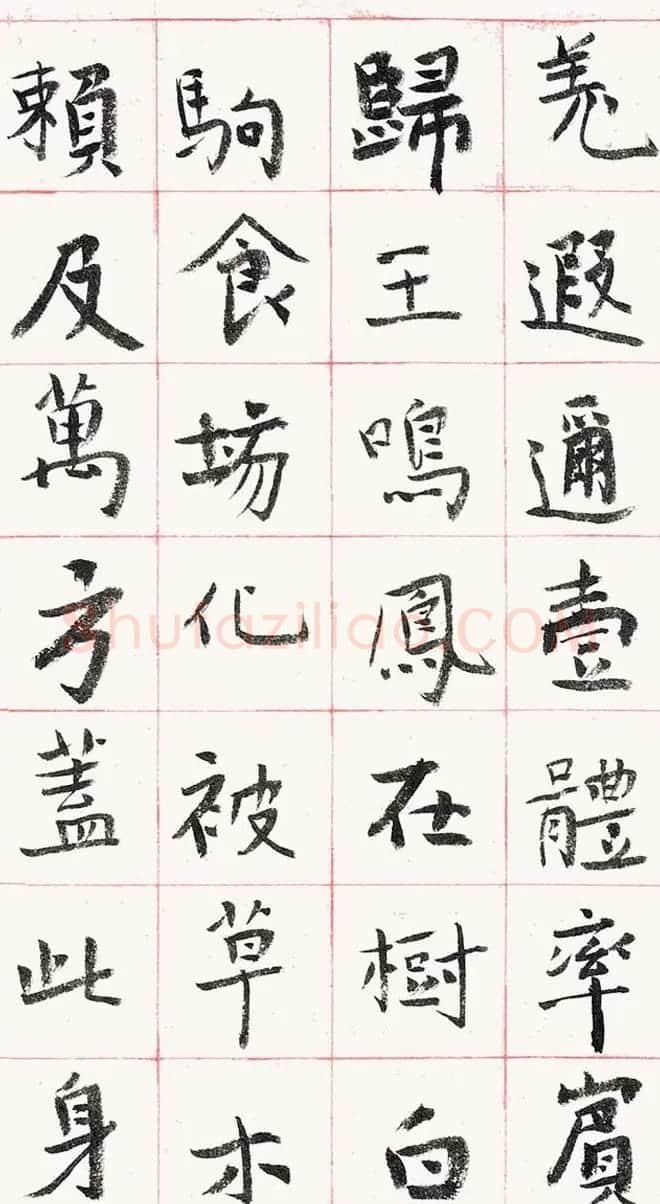 羌遐邇壹體率賓
歸王鳴鳳在樹白
駒食場化被草木
賴及萬方蓋此身
Shufaziliao.COM